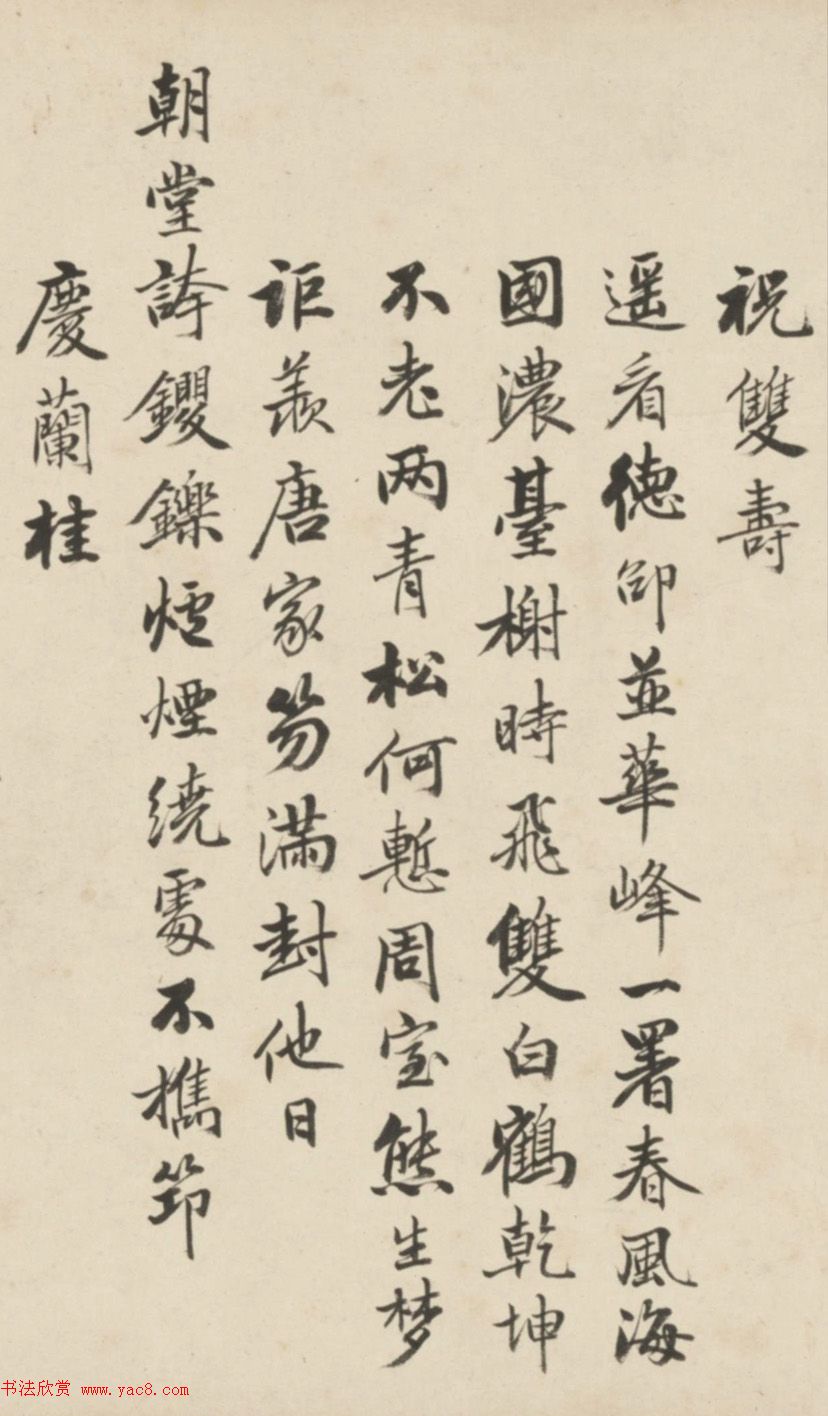 祝雙壽
遥看德邵並華峰一署春風海
國濃臺榭時飛雙白鶴乾坤
不老两青松何慙周室熊生梦
詎羨唐家笏满封他日
朝堂誇钁鑠爐煙繞處不㩦笻
慶蘭桂
书法欣赏 www.yac8.com